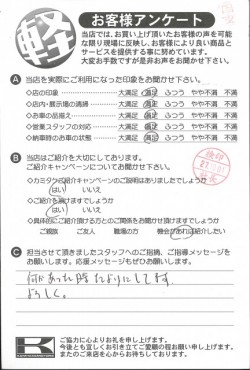 軽
お客様アンケート
当店では、お買い上げ頂いたお客様の声を可能
な限り現場に反映し、お客様により良い商品と
サービスを提供する事に努めています。
大変お手数ですが是非お声をお聞かせ下さい。
A 当店を実際にご利用になった印象をお聞かせ下さい。
◇店の印象 大満足 満足 ふつう やや不満 不満
◇店内・展示場の清掃 大満足 満足 ふつう やや不満 不満
◇お車の品揃え 大満足 満足 ふつう やや不満 不満
◇営業スタッフの対応 大満足 満足 ふつう やや不満 不満
◇納車時のお車の状態 大満足 満足 ふつう やや不満 不満
B 当店はご紹介を大切にしております。
ご紹介キャンペーンについてお聞かせ下さい。
◇カミタケご紹介キャンペーンのご説明はありましたでしょうか
はい いいえ
◇ご紹介を頂けますでしょうか
はい いいえ
◇具体的にご紹介頂ける方とのご関係をお聞かせ頂けますでしょうか
ご親族 ご友人 職場の方 機会があれば紹介したい
C 担当させて頂きましたスタッフへのご指摘、ご指導メッセージを
お願いします。応援メッセージもぜひお願いします。
何かあった時たよりにしてます。
よろしく。
ご協力に心よりお礼を申し上げます。
今後とも宜しくお引き立てご愛顧の程お願い申し上げます。
またのご来店を心からお待ちしております。